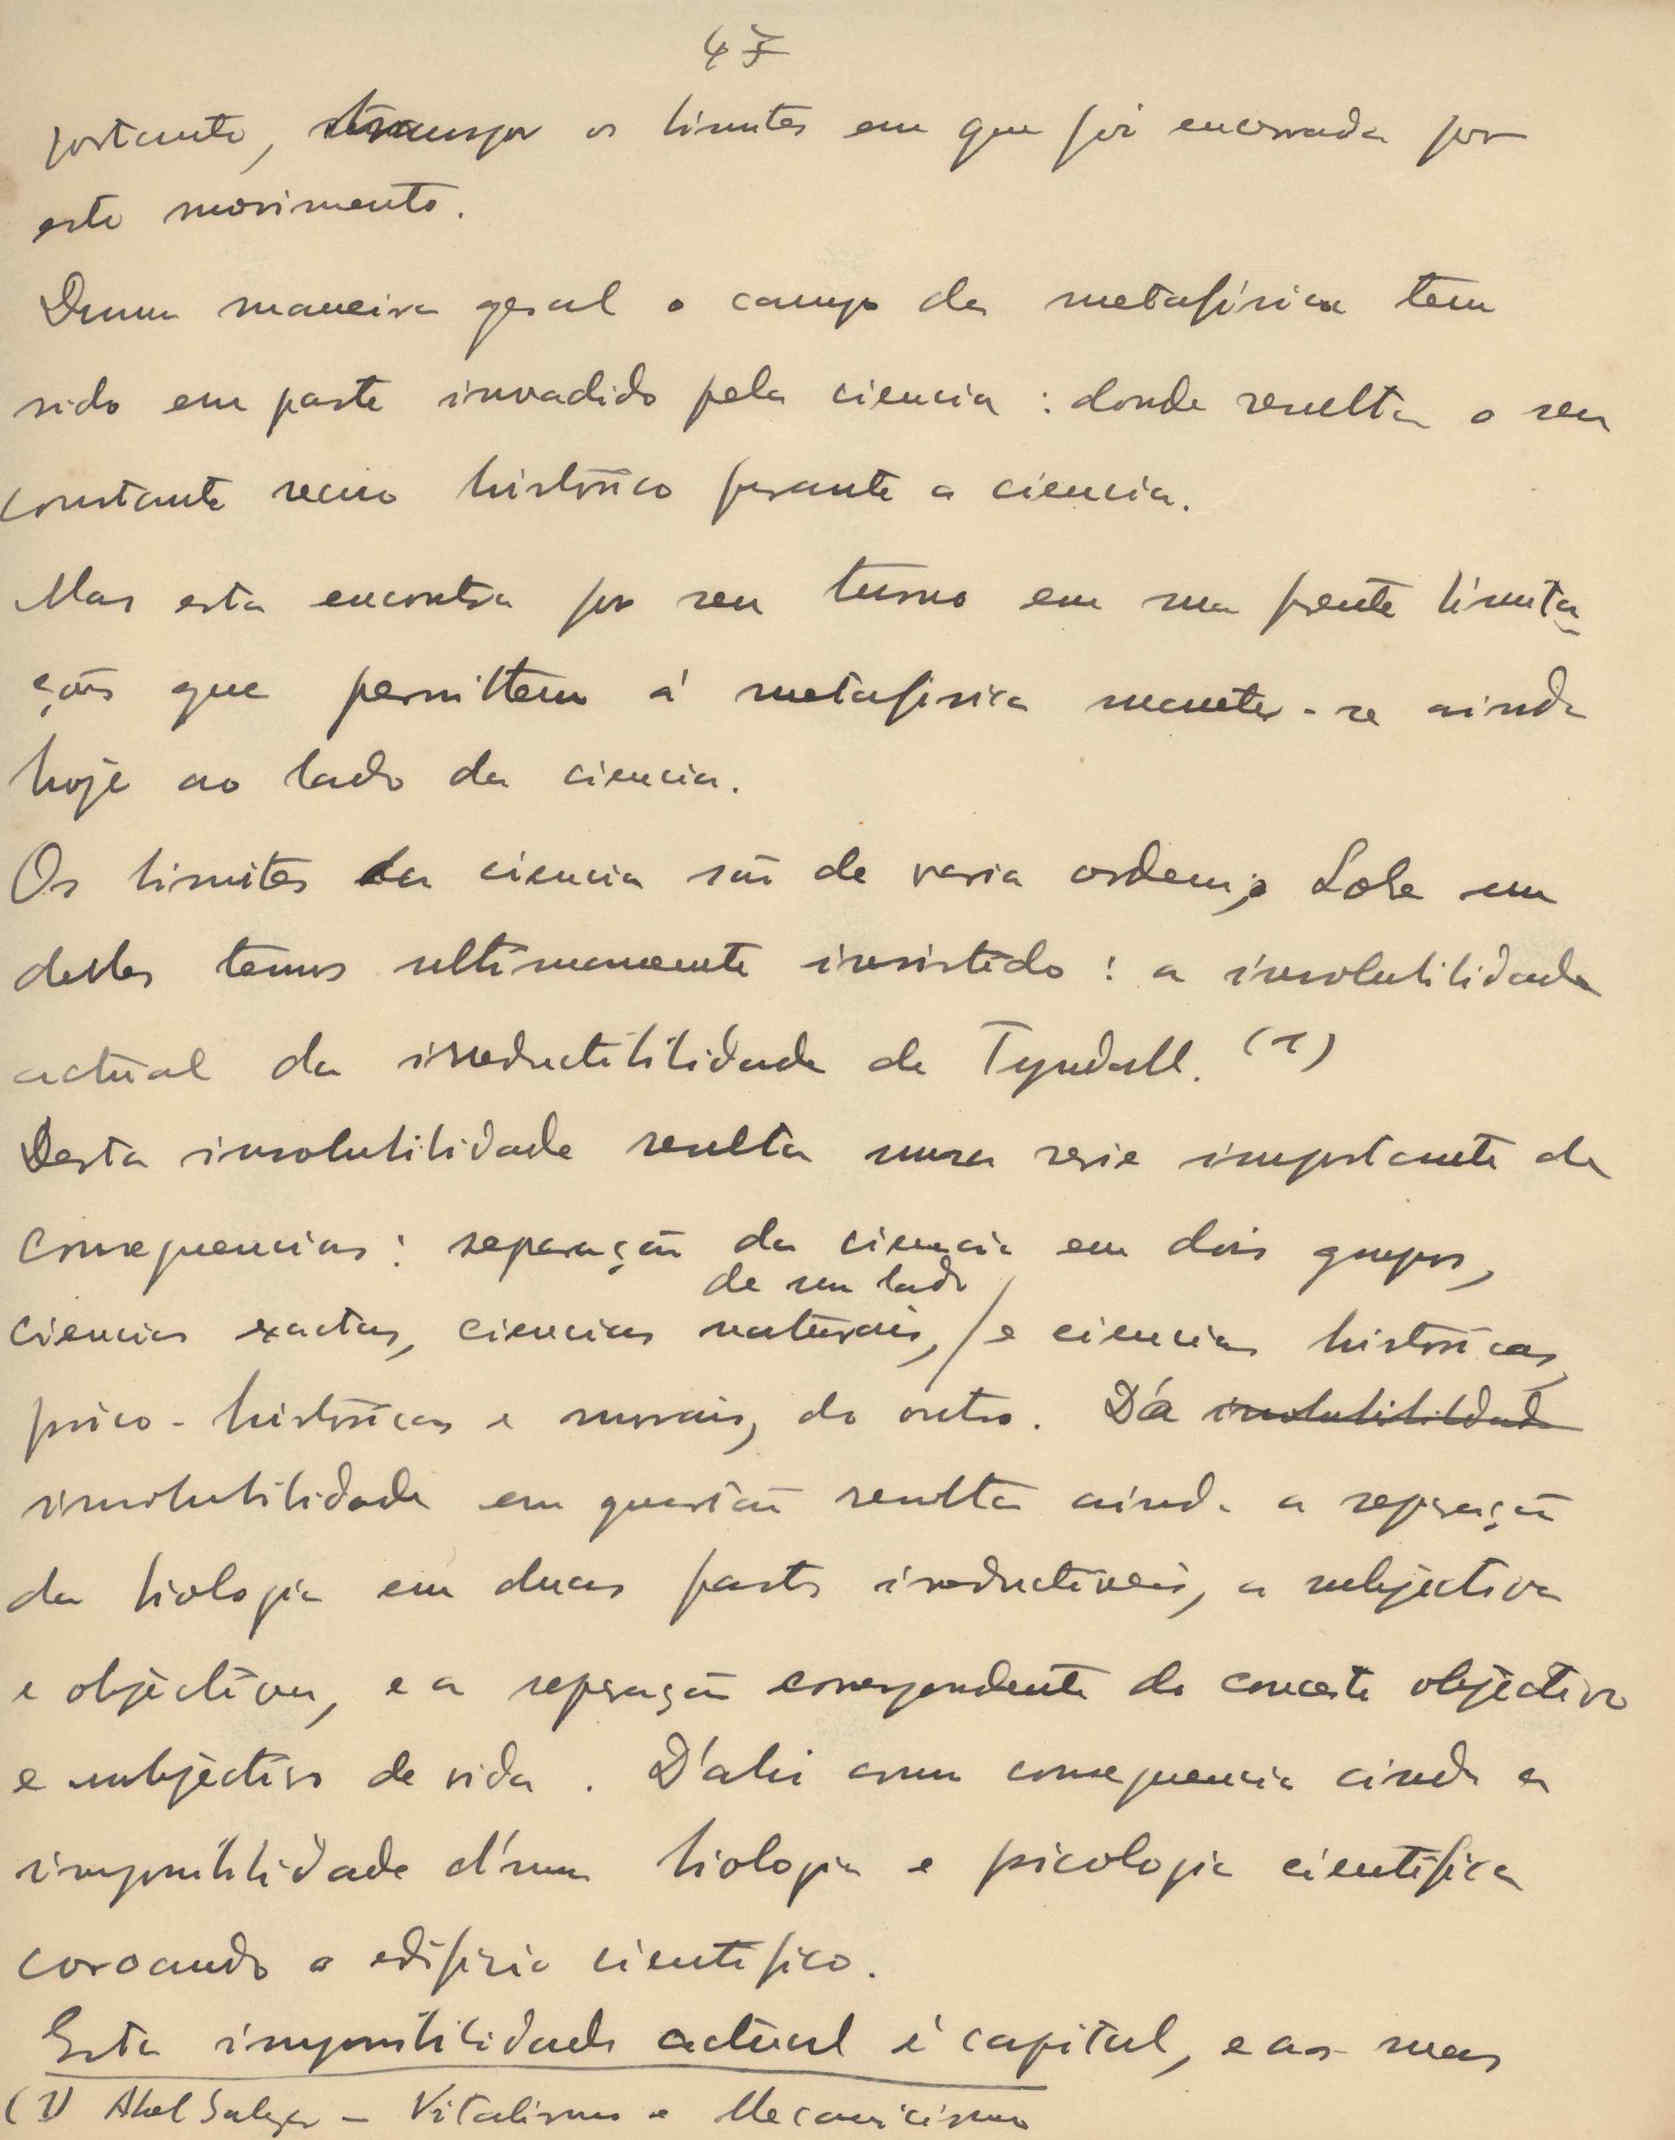 47
portanto, transpor os limites em que foi encerrada por
este movimento.
Duma maneira geral o campo da metafísica tem
sido em parte invadido pela ciencia : donde resulta o seu
constante recuo histórico perante a ciencia.
Mas esta encontra por seu turno em sua frente limita-
ções que permittem á metafisica manter-se ainda
hoje ao lado da ciencia.
Os limites da ciencia são de varia ordem; Sobre um
destes temos ultimamente insistido : a insolubilidade
actual da irreductibilidade de Tyndall. (1)
Desta insolubilidade resulta uma serie importante de
consequencias : separação da ciencia em dois grupos,
de um lado
ciencias exactas, ciencias naturais, / e ciencias históricas,
psico-históricas e morais, do outro. Dá insolubilidade
insolubilidade em questão resulta ainda a separação
da biologia em duas partes irreductiveis, a subjectiva
e objectiva, e a separação correspondente do conceito objectivo
e subjectivo de vida . D'ahi como consequencia ainda a
impossibilidade d'uma biologia e psicologia cientifica
coroando o edificio cientifico.
Esta impossibilidade actual é capital, e as suas
(1) Abel Salazar - Vitalismo e Mecanicismo